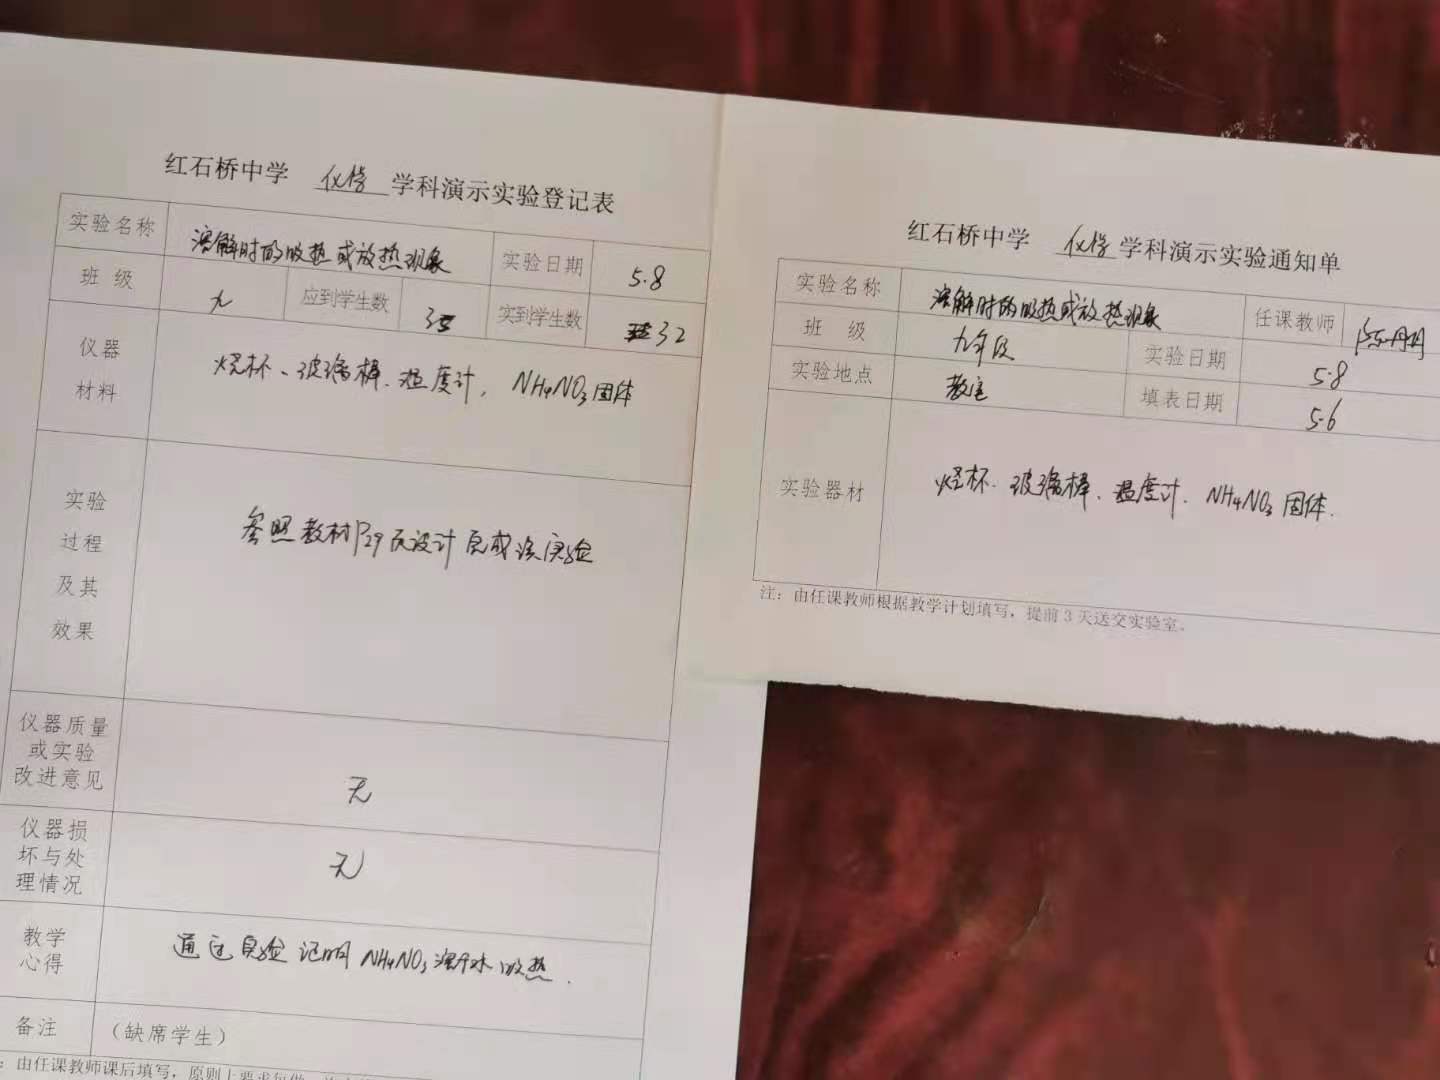 红石桥中学 化学 学科演示实验登记表
实验名称 溶解时的吸热或放热现象 实验日期 5.8
班 级 九 应到学生数 实到学生数 32
仪器
材料
烧杯、玻璃棒、温度计, NH4NO3固体
实验
过程
及其
效果
参照教材P29页设计完成该实验
仪器质量
或实验
改进意见
无
仪器损
坏与处
理情况
无
教学
心得
通过实验证明NH4NO3溶于水吸热.
备注 (缺席学生)
：由任课教师课后填写，原则上要求每做一
红石桥中学 化学 学科演示实验通知单
实验名称 溶解时的吸热或放热现象 任课教师 陈丹丹
班 级 九年级 实验日期 5.8
实验地点 教室 填表日期 5.6
实验器材 烧杯、玻璃棒、温度计、NH4NO3固体.
注：由任课教师根据教学计划填写，提前3天送交实验室。